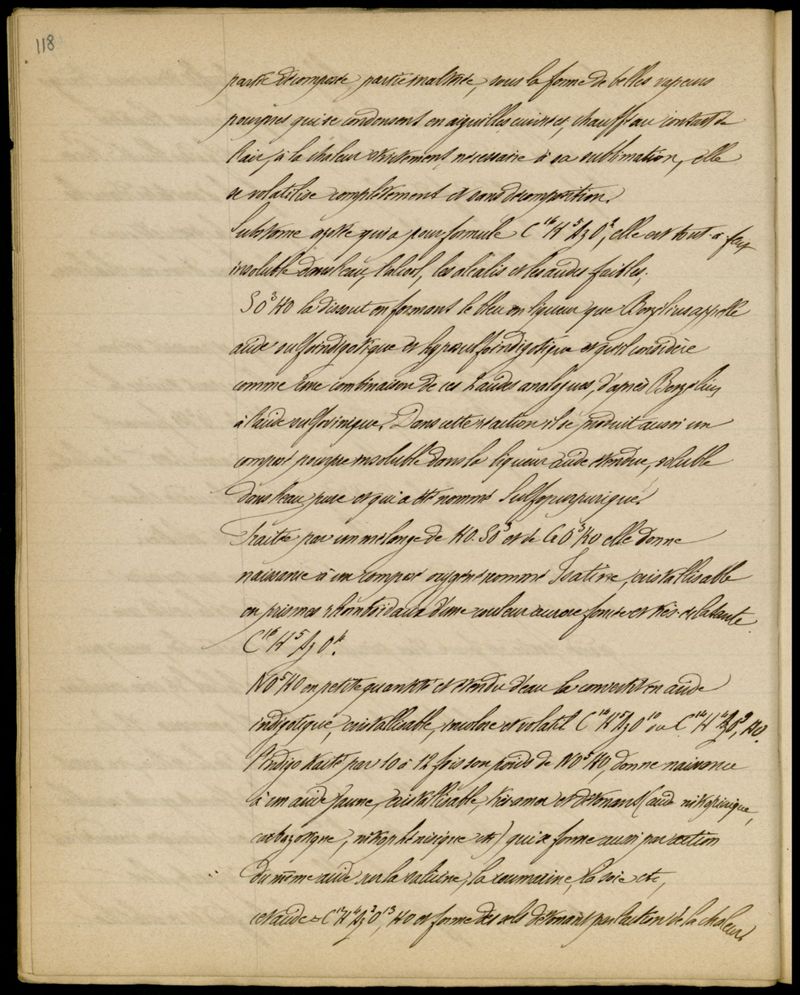 118
partie décomposée partie inaltérée, sous la forme de belles vapeurs
pourpres qui se condensent en aiguilles cuivrées, chauffée au contact de
l'air, à la chaleur strictement nécessaire à sa sublimation, elle
se volatilise complètement et sans décomposition.
Substance azotée qui a pour formule C¹⁶H⁵AzO², elle est tout à fait
insoluble dans l'eau, l'alcool, les alcalis et les acides faibles.
SO³HO la dissout en formant le bleu en liqueur que Berzélius appelle
acide sulfoindigotique et hyposulfoindigotique et qu'il considère
comme une combinaison de ces 2 acides analogues, d'après Berzelius,
à l'acide sulfovinique. Dans cette réaction il se produit aussi un
composé pourpre insoluble dans la liqueur acide étendue, soluble
dans l'eau pure et qui a été nommé Sulfopurpurique.
Traitée par un mélange de HO.SO³ et de CrO³HO elle donne
naissance à un composé oxygéné nommé Isatine, cristallisable
en prismes rhomboïdaux d'une couleur aurore foncée et très éclatante
C¹⁶H⁵AzO⁴.
NO⁵HO en petite quantité et étendu d'eau la convertit en acide
indigotique, cristallisable, incolore et volatil C¹⁴H⁵AzO¹⁰ ou C¹⁴H⁴AzO⁹, HO.
l'Indigo traité par 10 à 12 fois son poids de NO⁵HO, donne naissance
à un acide jaune, cristallisable, très amer et détonant (acide nitropicrique,
carbazotique, nitrophénisique etc) qui se forme aussi par l'action
du même acide sur la salicine, la coumarine, la soie etc,
cet acide = C¹²H²Az³O¹³, HO et forme des sels détonant par l'action de la chaleur